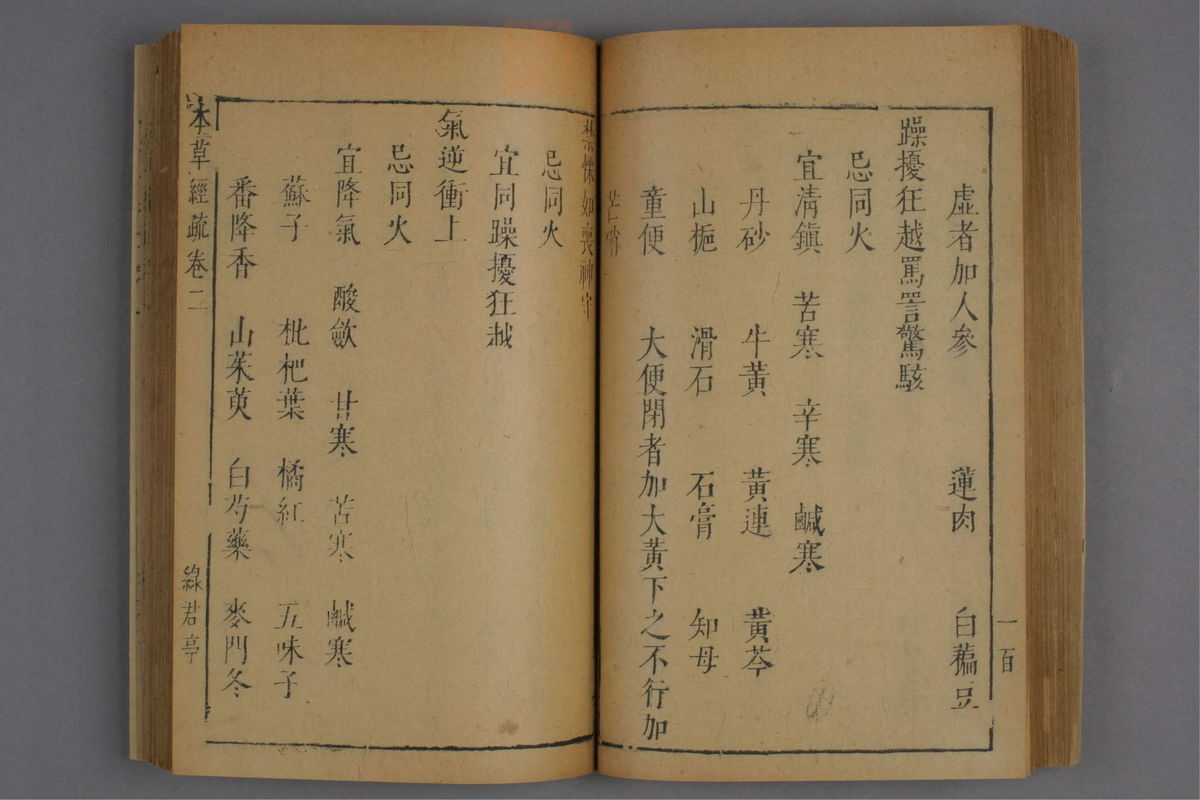 虛者加人參 蓮肉 白藊豆
躁擾狂越罵詈驚駭
忌同火
宜清鎮 苦寒 辛寒 鹹寒
丹砂 牛黃 黃連 黃芩
山梔 滑石 石膏 知母
童便 大便閉者加大黃下之不行加
芒硝
禁慄如喪神守
忌同火
宜同躁擾狂越
氣逆衝上
忌同火
宜降氣 酸斂 甘寒 苦寒 鹹寒
蘇子 枇杷葉 橘紅 五味子
番降香 山茱萸 白芍藥 麥門冬
本草經疏卷二 綠君亭
一百